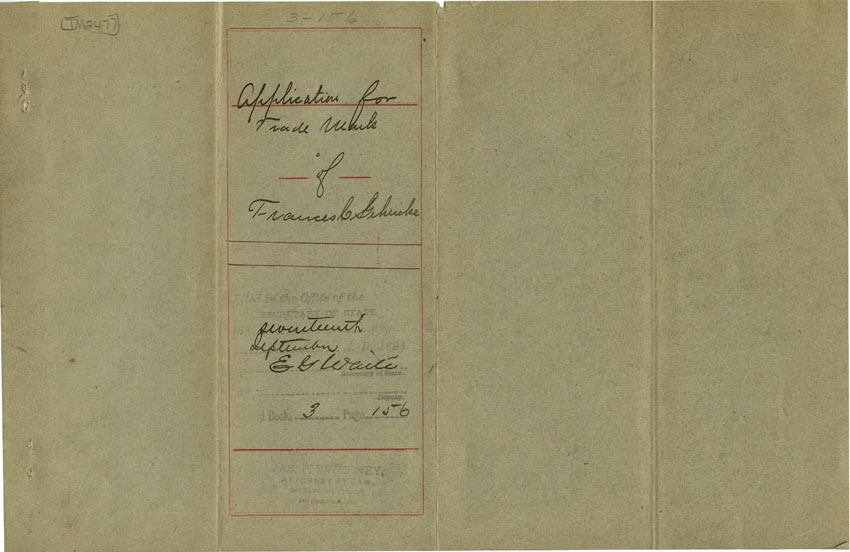 TM2477
3-156
Application for
Trade Mark
of
Frances C
Filed in the Office of the
SECRETARY OF STATE
the seventeenth day of
September A.D. 1894
E G Waite
Secretary of State.
Deputy.
Book, 3 Page 156
JAS. P. SWEENEY,
ATTORNEY AT LAW,